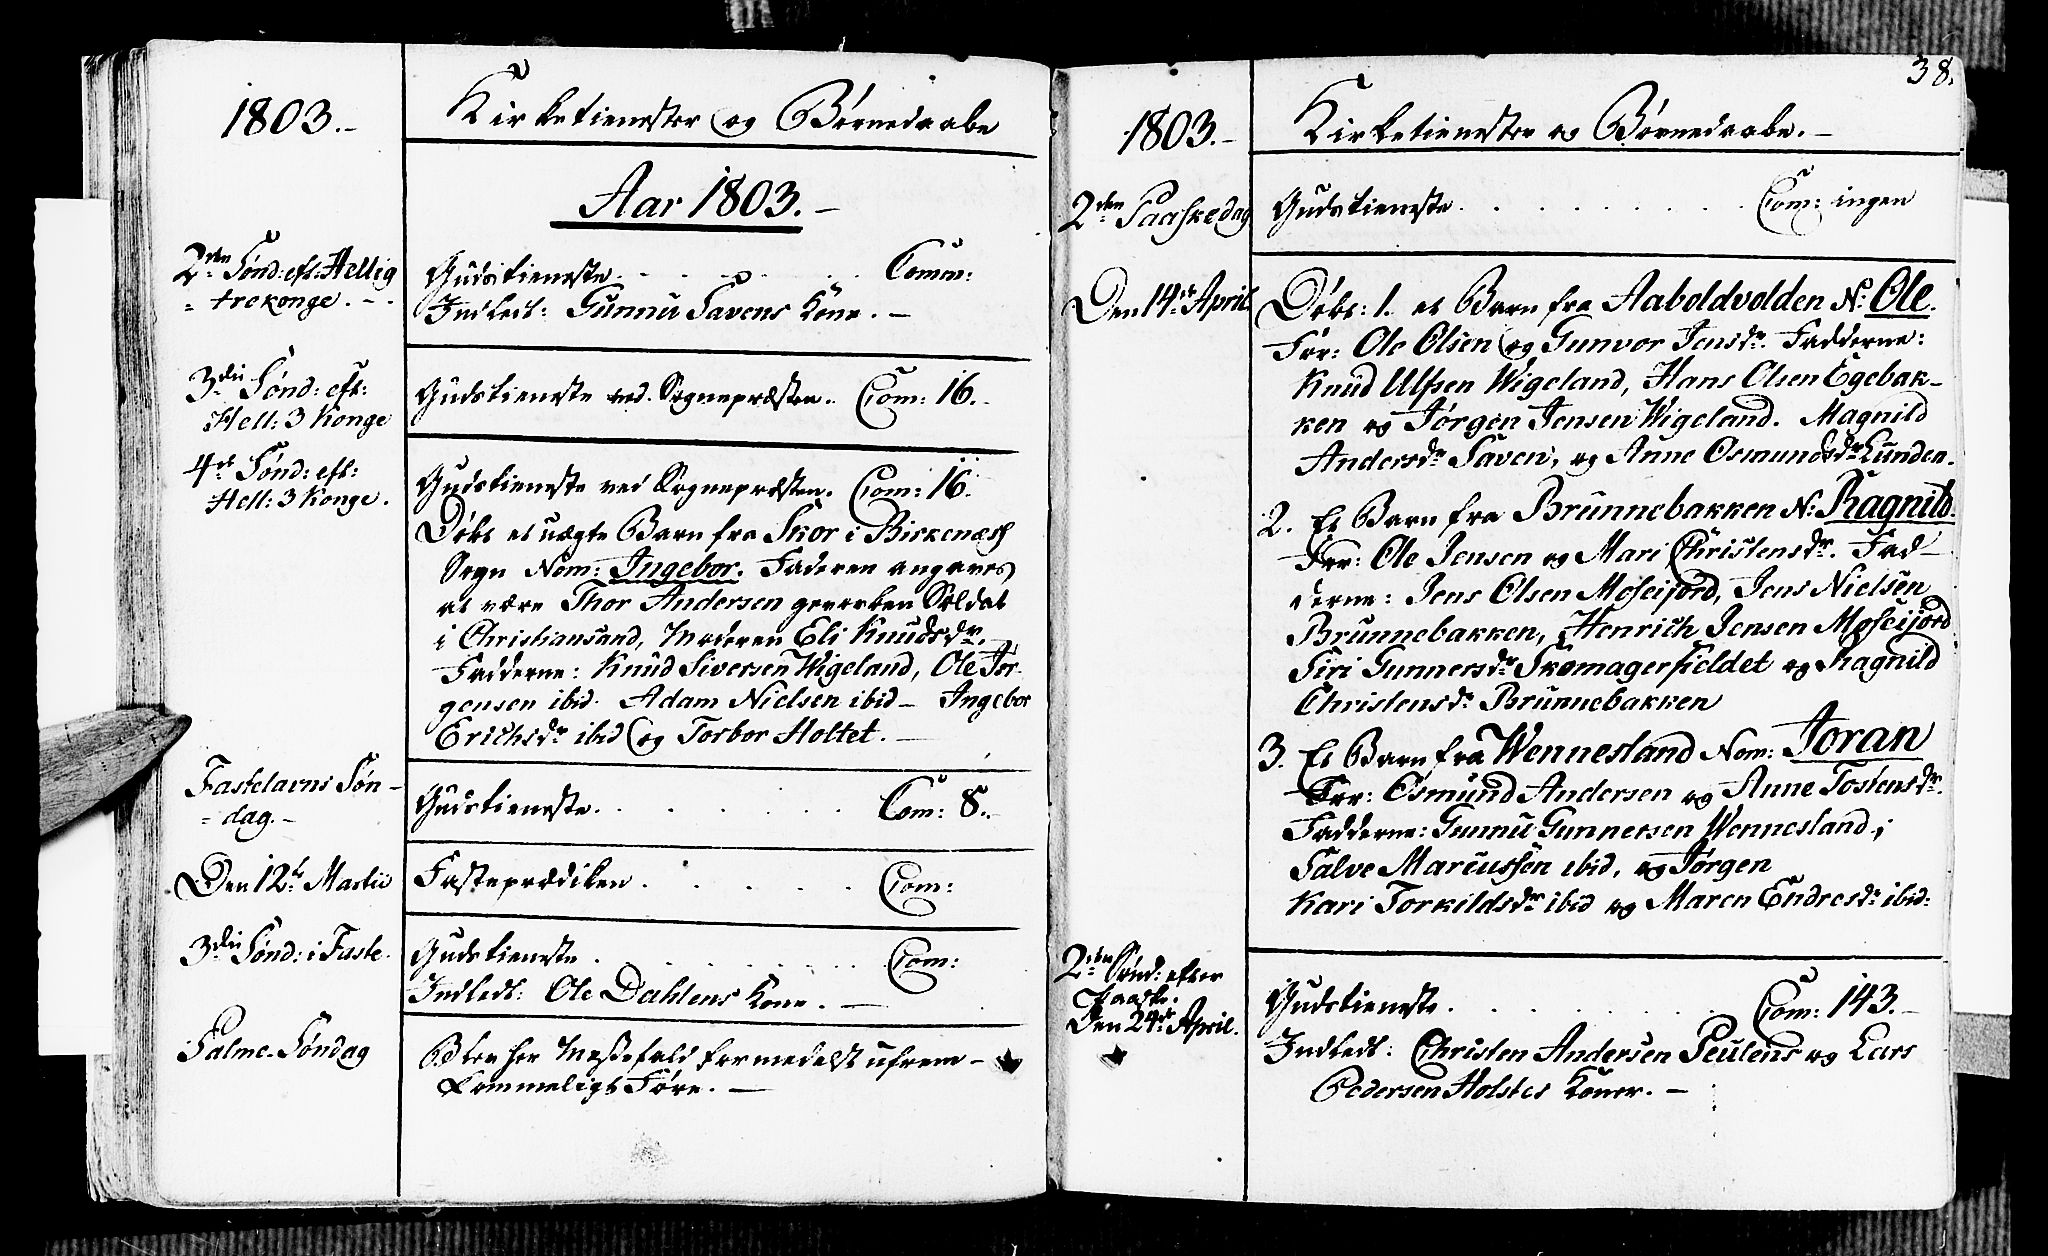 1803.-
Kirketienester og Børnedaabe
Aar 1803.-
2den Sønd: eft: Hellig
= trekonge.
Gudstieneste. Comm:
Indledt: Gunnu Savens Kone.-
3die Sønd: eft:
Hell: 3 Konge
Gudstieneste ved Sognepræsten. Com: 16.
4de Sønd: eft:
Hell: 3 Konge.
Gudstieneste ved Sognepræsten. Com: 16.
Døbt et uægte Barn fra Skor i Birkenæss
Sogn Nom: Ingebor. Faderen angaves
at være Thor Andersen gevorben Soldat
i Christiansand, Moderen Eli Knudsdr.
Fadderne: Knud Siversen Wigeland, Ole Jør-
gensen ibid. Adam Nielsen ibid - Ingebor
Erichsdr ibid og Torbor Holtet.-
Fastelavns Søn-
= dag.-
Gudstieneste. Com: 8.
Den 12te Martii
Fasteprædiken. Com:
3die Sønd: i Faste.
Gudstieneste. Com:
Indledt: Ole Dahlens Kone.-
Palme-Søndag
Blev her Messefald formedelst ufrem-
kommeligt Føre.-
38.
1803.-
Kirketienester og Børnedaabe.-
2den Paaskedag
Gudstieneste. Com: ingen
Den 14de April
Døbt: 1. et Barn fra Aaboldvolden N: Ole.
For: Ole Olsen og Gunvor Jensdr. Fadderne:
Knud Ulfsen Wigeland, Hans Olsen Egebak-
ken og Jørgen Jensen Wigeland. Magnild
Andersdr Saven, og Anne Osmundsdr Lunden.
2. Et Barn fra Brunnebakken N: Ragnild.
For: Ole Jensen og Mari Christensdr. Fad-
derne: Jens Olsen Moseifjord, Jens Nielsen
Brunnebakken, Henrich Jensen Moseifjord
Siri Gunnersdr Skomagerfieldet og Ragnild
Christensdr Brunnebakken
3. Et Barn fra Wennesland Nom: Joran
For: Osmund Andersen og Anne Tostensdr.
Fadderne: Gunnu Gunnersen Wennesland,
Salve Marcussen ibid, og Jørgen
Kari Torkildsdr ibid og Maren Endresdr ibid:
2den Sønd: efter
Paaske.
Den 24de April.
Gudstieneste. Com: 143.-
Indledt: Christen Andersen Peulens og Lars
Pedersen Holstes Koner.-